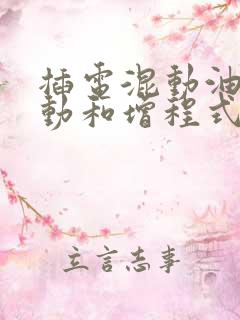 插電混動油
動和增程式
立言志事